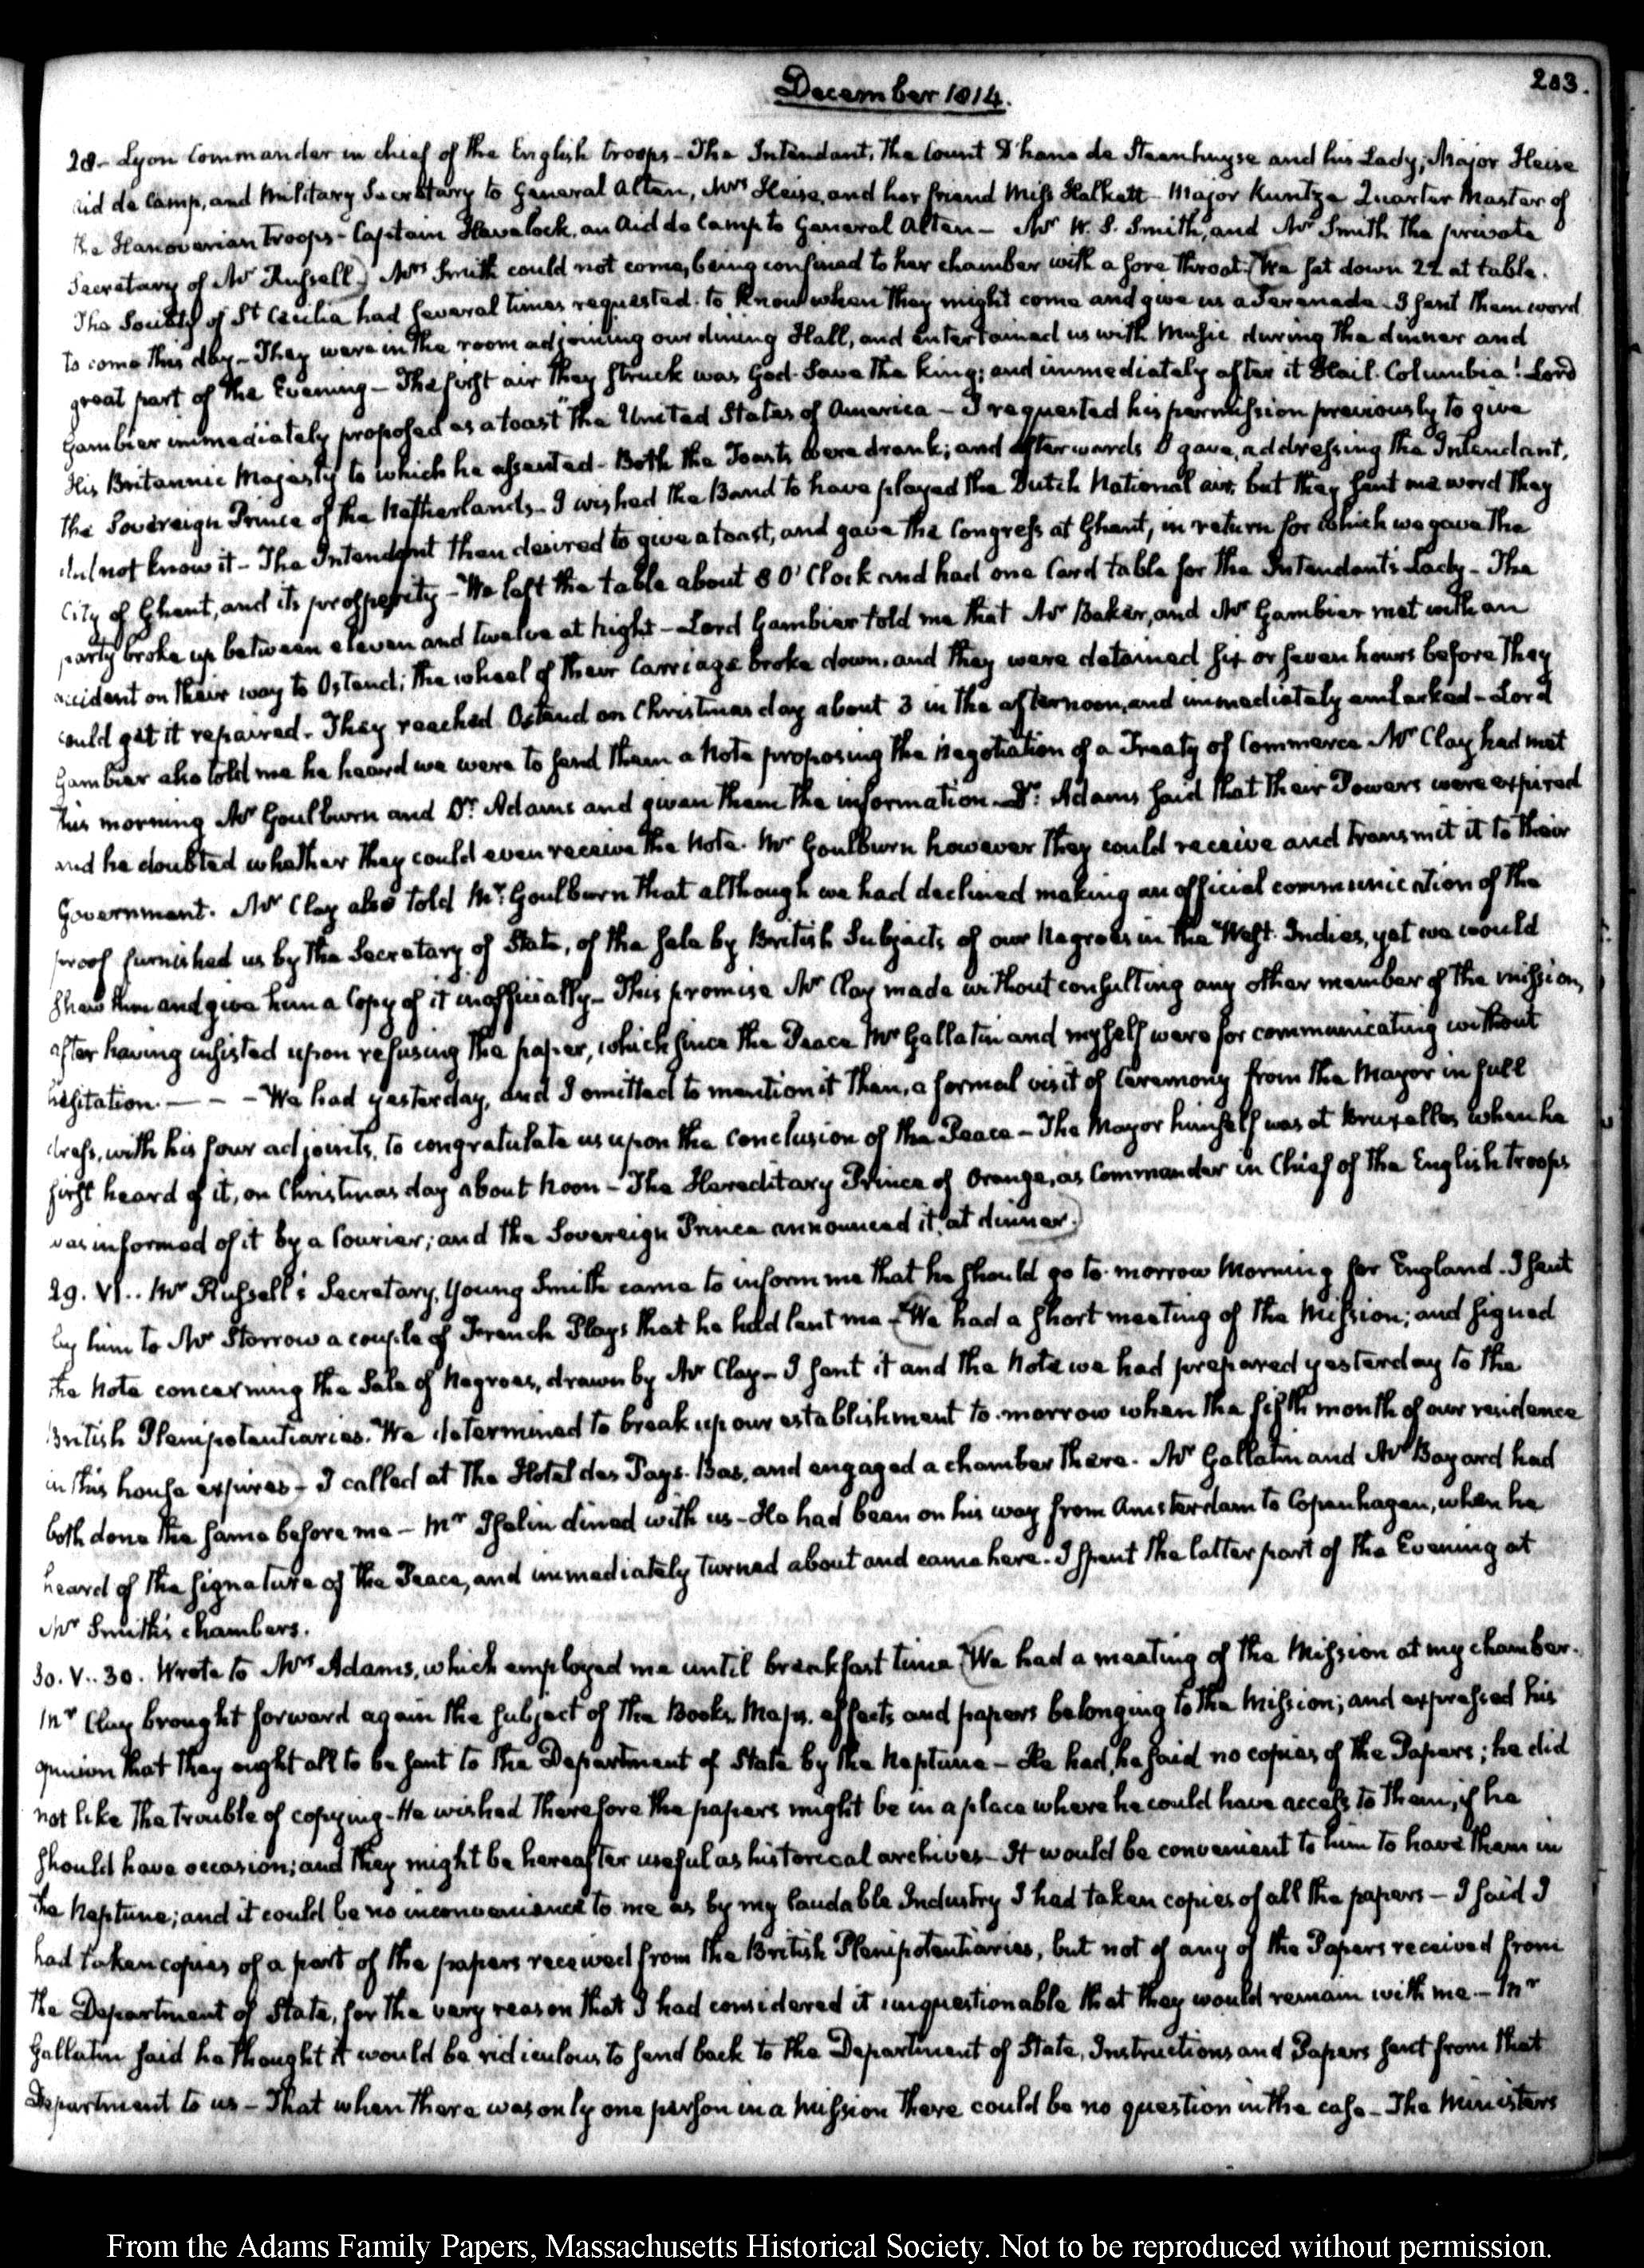 December 1814.
203.
28- Lyon Commander in chief of the English troops - The Intendant, The Count D'hane de Steenhuyse and his Lady, Major Heise
aid de Camp, and Military Secretary to General Alten, Mrs Heise, and her friend Miss Halkett - Major Kuntze Quarter Master of
the Hanoverian troops - Captain Havelock, an Aid de Camp to General Alten - Mr W. S. Smith, and Mr Smith the private
Secretary of Mr Russell.) Mrs Smith could not come, being confined to her chamber with a sore throat. (We sat down 22 at table.
The Society of St Cecilia had several times requested to know when they might come and give us a Serenade - I sent them word
to come this day - They were in the room adjoining our dining Hall, and entertained us with Music during the dinner and
great part of the Evening - The first air they struck was God Save the King; and immediately after it Hail Columbia! Lord
Gambier immediately proposed as a toast "The United States of America - I requested his permission previously to give
His Britannic Majesty to which he assented - Both the Toasts were drank; and afterwards I gave, addressing the Intendant,
the Sovereign Prince of the Netherlands - I wished the Band to have played the Dutch National air, but they sent me word they
did not know it - The Intendant then desired to give a toast, and gave the Congress at Ghent, in return for which we gave the
City of Ghent, and its prosperity - We left the table about 8 O'Clock and had one Card table for the Intendant's Lady - The
party broke up between eleven and twelve at night - Lord Gambier told me that Mr Baker, and Mr Gambier met with an
accident on their way to Ostend; the wheel of their Carriage broke down, and they were detained six or seven hours before they
could get it repaired. They reached Ostend on Christmas day about 3 in the afternoon, and immediately embarked - Lord
Gambier also told me he heard we were to send them a Note proposing the Negotiation of a Treaty of Commerce Mr Clay had met
this morning Mr Goulburn and Dr. Adams and given them the information - Dr. Adams said that their Powers were expired
and he doubted whether they could even receive the Note. Mr Goulburn however they could receive and transmit it to their
Government. Mr Clay also told Mr. Goulburn that although we had declined making an official communication of the
proof furnished us by the Secretary of State, of the sale by British Subjects of our Negroes in the West-Indies, yet we would
shew him and give him a Copy of it inofficially - This promise Mr Clay made without consulting any other member of the mission,
after having insisted upon refusing the paper, which since the Peace Mr Gallatin and myself were for communicating without
hesitation. — - - We had yesterday, and I omitted to mention it then, a formal visit of Ceremony from the Mayor in full
dress, with his four adjoints, to congratulate us upon the Conclusion of the Peace - The Mayor himself was at Bruxelles when he
first heard of it, on Christmas day about Noon - The Hereditary Prince of Orange, as Commander in Chief of the English troops
was informed of it by a Courier; and the Sovereign Prince announced it at dinner.)
29. VI.. Mr Russell's Secretary, young Smith came to inform me that he should go to-morrow Morning for England. I sent
by him to Mr Storrow a couple of French Plays that he had lent me - (We had a short meeting of the Mission; and signed
the Note concerning the Sale of Negroes, drawn by Mr Clay - I sent it and the Note we had prepared yesterday to the
British Plenipotentiaries. We determined to break up our establishment to-morrow when the fifth month of our residence
in this house expires) - I called at the Hotel des Pays-Bas, and engaged a chamber there. Mr Gallatin and Mr Bayard had
both done the same before me - Mr Iselin dined with us - He had been on his way from Amsterdam to Copenhagen, when he
heard of the signature of the Peace, and immediately turned about and came here. I spent the latter part of the Evening at
Mr Smith's chambers.
30. V.. 30. Wrote to Mrs Adams, which employed me until breakfast time (We had a meeting of the Mission at my chamber.
Mr Clay brought forward again the subject of the Books, Maps, effects and papers belonging to the Mission; and expressed his
opinion that they ought all to be sent to the Department of State by the Neptune - He had, he said no copies of the Papers; he did
not like the trouble of copying - He wished therefore the papers might be in a place where he could have access to them, if he
should have occasion; and they might be hereafter useful as historical archives - It would be convenient to him to have them in
the Neptune; and it could be no inconvenience to me as by my laudable Industry I had taken copies of all the papers - I said I
had taken copies of a part of the papers received from the British Plenipotentiaries, but not of any of the Papers received from
the Department of State, for the very reason that I had considered it unquestionable that they would remain with me - Mr
Gallatin said he thought it would be ridiculous to send back to the Department of State, Instructions and Papers sent from that
Department to us - That when there was only one person in a Mission there could be no question in the case - The Ministers
From the Adams Family Papers, Massachusetts Historical Society. Not to be reproduced without permission.